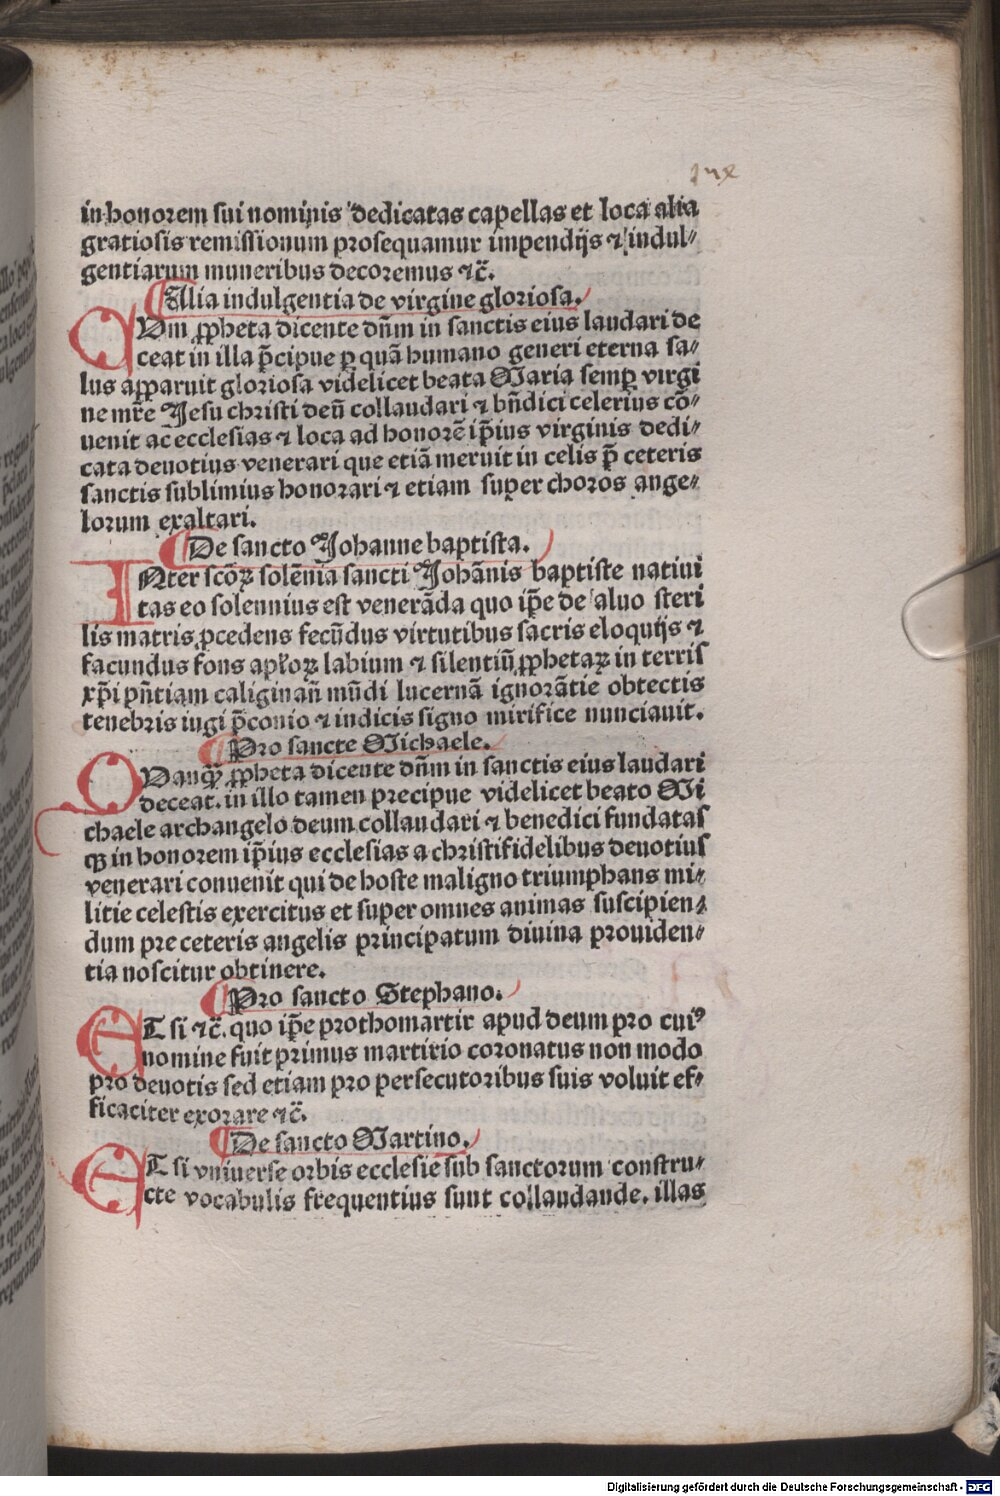 in honorem sui nominis dedicatas capellas et loca alia
gratiosis remissionum prosequamur impendijs ⁊ indul⸗
gentiarum muneribus decoremus ⁊c̃.
¶Alia indulgentia de virgine gloriosa.
QVm ꝓpheta dicente dñm in sanctis eius laudari de
ceat in illa p̃cipue ꝑ quã humano generi eterna sa⸗
lus apparuit gloriosa videlicet beata Maria semꝑ virgi
ne mr̃e Jesu christi deũ collaudari ⁊ bñdici celerius cõ⸗
uenit ac ecclesias ⁊ loca ad honorẽ ip̃ius virginis dedi⸗
cata deuotius venerari que etiã meruit in celis p̃ ceteris
sanctis sublimius honorari ⁊ etiam super choros ange⸗
lorum exaltari.
¶De sancto Johanne baptista.
INter scõꝝ solẽnia sancti Johãnis baptiste natiui
tas eo solennius est venerãda quo ip̃e de aluo steri
lis matris ꝓcedens fecũdus virtutibus sacris eloquijs ⁊
facundus fons apl'oꝝ labium ⁊ silentiũ ꝓphetaꝝ in terris
xp̃i pñtiam caliginañ mũdi lucernã ignorãtie obtectis
tenebris iugi p̃conio ⁊ indicis signo mirifice nunciauit.
¶Pro sancte Michaele.
QVanqꝫ̃ ꝓpheta dicente dñm in sanctis eius laudari
deceat. in illo tamen precipue videlicet beato Mi
chaele archangelo deum collaudari ⁊ benedici fundatas
qꝫ in honorem ip̃ius ecclesias a christifidelibus deuotius
venerari conuenit qui de hoste maligno triumphans mi⸗
litie celestis exercitus et super omnes animas suscipien⸗
dum pre ceteris angelis principatum diuina prouiden⸗
tia noscitur obtinere.
¶Pro sancto Stephano.
ET si ⁊c̃. quo ip̃e prothomartir apud deum pro cuiꝰ
nomine fuit primus martirio coronatus non modo
pro deuotis sed etiam pro persecutoribus suis voluit ef⸗
ficaciter exorare ⁊c̃.
¶De sancto Martino.
ET si vniuerse orbis ecclesie sub sanctorum constru⸗
cte vocabulis frequentius sunt collaudande. illas
Digitalisierung gefördert durch die Deutsche Forschungsgemeinschaft - DFG